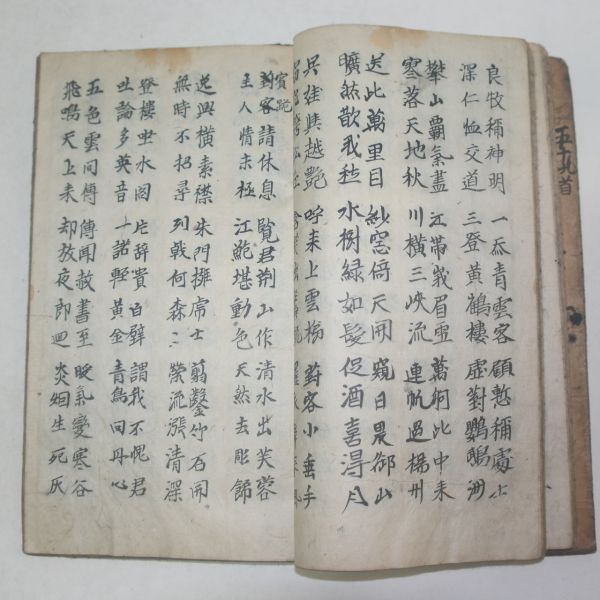 五十九首
良牧稱神明 一忝青雲客 顧慙稱處士
深仁恤交道 三登黃鶴樓 虛對鸚鵡洲
攀山覇氣盡 江帶峩眉雪 萬舸此中来
寥落天地秋 川橫三峽流 連帆過楊州
送此萬里目 紗窓倚天開 窺日畏御山
曠然散我愁 水樹綠如髮 促酒喜得月
吳娃與越艶 呼来上雲梯 對客小垂手
賓跪
對客請休息 覽君荊山作 清水出芙蓉
主人情未極 江鮑堪動色 天然去彫飾
逸興橫素襟 朱門擁虎士 剪鑿竹石開
無時不招尋 列戟何森〻 縈流漲清深
登樓坐水閣 片辞貴白璧 謂我不愧君
吐論多英音 一諾輕黃金 青鳥向丹心
五色雲间傳 傳聞赦書至 暖氣變寒谷
飛鳴天上来 却放夜郎廻 炎烟生死灰